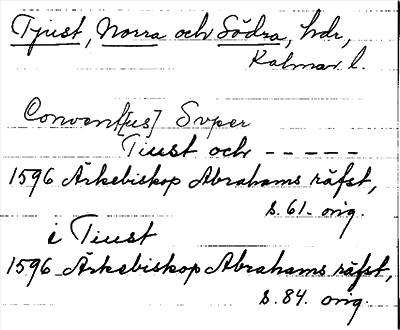 Tjust, Norra och Södra, hdr,
Kalmar l.
Convent[us] Svper
Tiust och -----
1596 Ärkebiskop Abrahams räfst,
s. 61. orig.
i Tiust
1596 Ärkebiskop Abrahams räfst,
s. 84. orig.